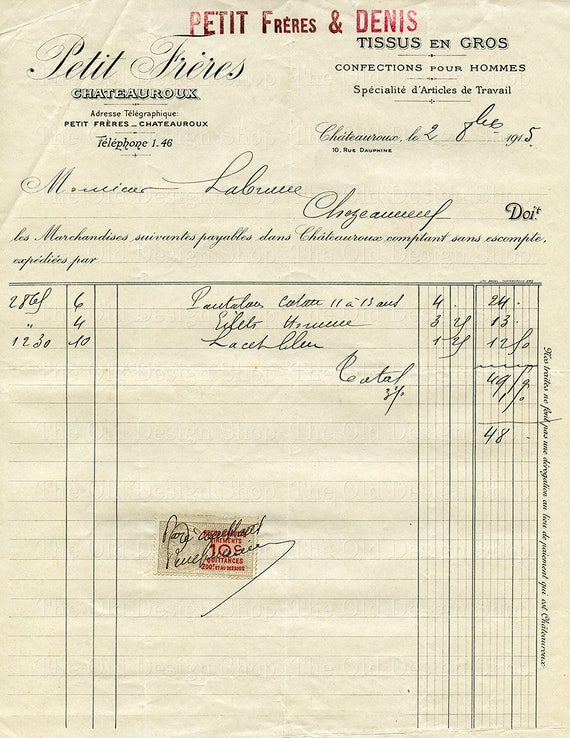 PETIT FRÈRES & DENIS
Petit Frères
CHATEAUROUX
Adresse Télégraphique:
PETIT FRÈRES _ CHATEAUROUX
Téléphone 1.46
TISSUS EN GROS
CONFECTIONS POUR HOMMES
Spécialité d'Articles de Travail
Châteauroux, le 2 8bre 1915
10, RUE DAUPHINE
Monsieur Labrune
Doit
les Marchandises suivantes payables dans Châteauroux comptant sans escompte,
expédiées par
6 Pantalons 11 à 13 ans 4 . 24 .
" 4 Gilets Homme 3 25 13 .
1230 10 Lacet bleu 1 25 12 50
Total 49 50
3% 1 50
48
Nos traites ne font pas une dérogation au lieu de paiement qui est Châteauroux
10c
QUITTANCES
The Old Design Shop